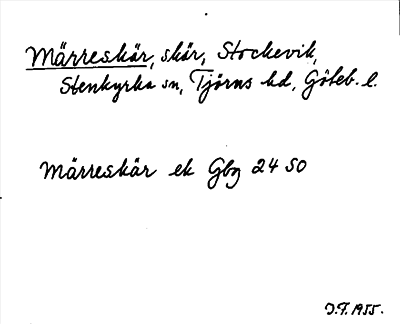 Märreskär, skär, Stockevik,
Stenkyrka sn, Tjörns hd, Göteb. l.
Märreskär ek Gbg 24 SO
J.F. 1955.